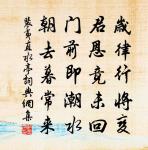 歲律行將变
君恩竟未回
門前即潮水
朝去暮常来
裴夷直水亭詞典網集